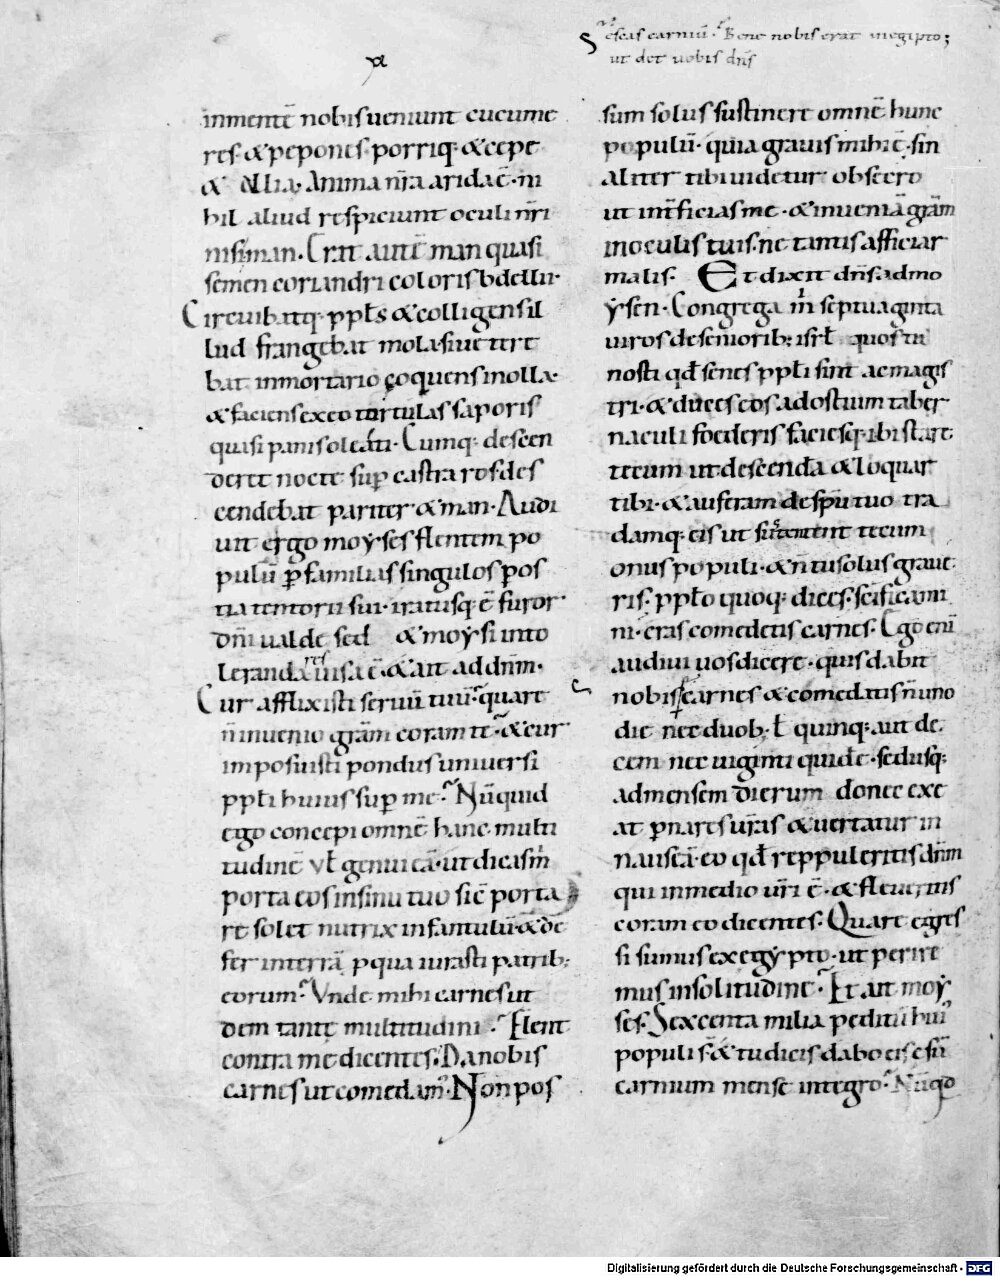 escas carniū. Bene nobis erat inegipto;
ut det uobis dn̄s
inmentē nobis ueniunt cucume
res & pepones porriq; & cepe
& allia. Anima nr̄a arida ē. ni
hil aliud respiciunt oculi nr̄i
nisi man. Erat autē man quasi
semen coriandri coloris bdellii.
Circuibatq; ppl̄s & colligens il
lud frangebat mola siue tere
bat inmortario coquens inolla.
& faciens exeo tortulas saporis
quasi panis oleati. Cumq; descen
deret nocte sup̄ castra ros des
cendebat pariter & man. Audi
uit ergo moẏses flentem po
pulū p̄ familias singulos pos
tia tentorii sui. iratusq; ē furor
dn̄i ualde sed & moẏsi into
leranda res uisa ē. & ait ad dn̄m.
Cur afflixisti seruū tuū. quare
n̄ inuenio grām coram te. & cur
imposuisti pondus uniuersi
ppl̄i huius sup̄ me. Nūquid
ego concepi omnē hanc multi
tudinē vl̄ genui eā. ut dicas m̄
porta eos insinu tuo sic̄ porta
re solet nutrix infantulū. & de
fer interrā p qua iurasti patrib;
eorum. Vnde mihi carnes ut
dem tante multitudini. Flent
contra me dicentes. Da nobis
carnes ut comedam. Non pos
sum solus sustinere omnē hunc
populū. quia grauis mihi ē. sin
aliter tibi uidetur obsecro
ut int̄ficias me. & inueniā grām
inoculis tuis. ne tantis afficiar
malis. Et dixit dn̄s. admo
ẏsen. Congrega m̄ septuaginta
uiros de seniorib; isrl̄ quos tu
nosti qd̄ senes ppl̄i sint ac magis
tri. & duces eos adostium taber
naculi foederis faciesq; ibi stare
tecum ut descendā & loquar
tibi. & auferam de spū tuo tra
damq; eis ut sustentent tecum
onus populi. & n̄ tu solus graue
ris. pplo quoq; dices. scificami
ni. cras comedetis carnes. Ego eni
audiui uos dicere. quis dabit
nobis carnes & comedatis n̄ uno
die nec duob; l̄ quinq; aut de
cem nec uiginti quidē. sed usq;
admensem dierum donec exe
at p̄ nares ur̄as & uertatur in
nauseā. eo qd̄ reppuleritis dn̄m
qui inmedio ur̄i ē. & fleueritis
coram eo dicentes. Quare egres
si sumus exegẏpto. ut perire
mus insolitudine. Et ait moẏ
ses. Sexcenta milia peditū hui
populi s̄. & tu dicis dabo eis esū
carnium mense integro. Nūqd
Digitalisierung gefördert durch die Deutsche Forschungsgemeinschaft - DFG